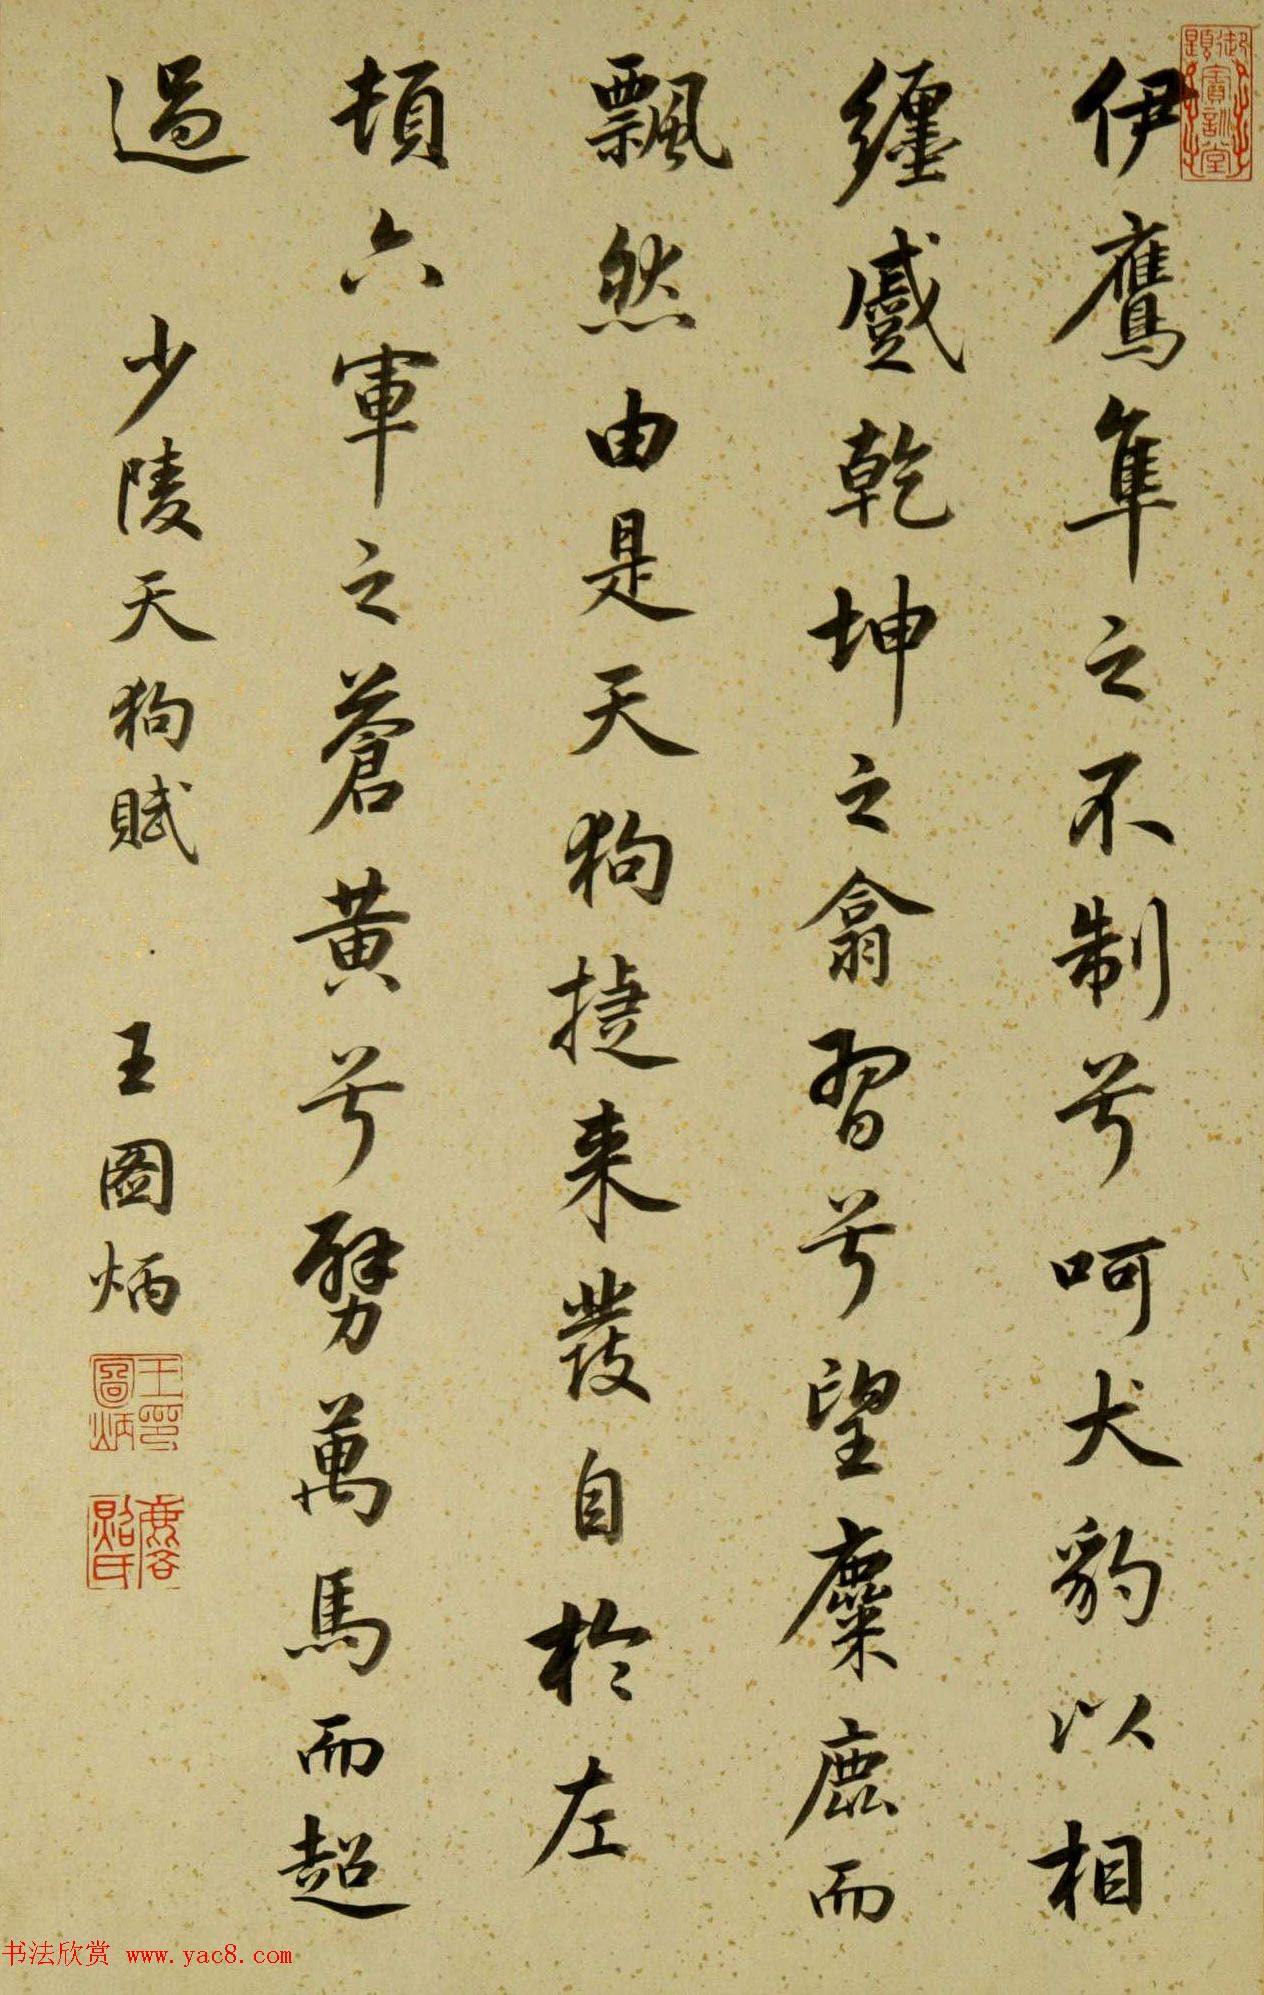 伊鷹隼之不制兮呵犬豹以相
纏蹙乾坤之翕習兮望麋鹿而
飄然由是天狗捷来發自於左
頓六軍之蒼黄兮劈萬馬而超
過
少陵天狗賦
王圖炳
王圖炳印
書法欣赏 www.yac8.com